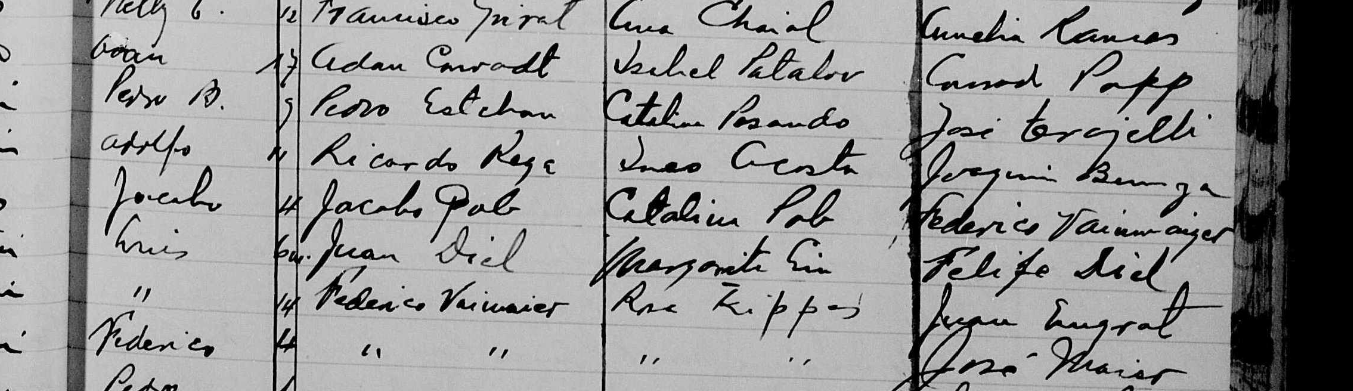 Nelly C. 12 Francisco Giral Ana Chaial Amelia Ramos
Adan Conradt Isabel Patalov Conrad Popp
Pedro B. 9 Pedro Esteban Catalina Posando José
Adolfo 11 Ricardo Rega Ines Acosta Joaquin
Jacobo 4 Jacobo Pob Catalina Pob Federico Vainmaiger
Luis 6m. Juan Diel Margarita Felipe Diel
" 14 Federico Vaimaier Rosa Kippes Juan
Federico 4 " " " " José Maier
Pedro